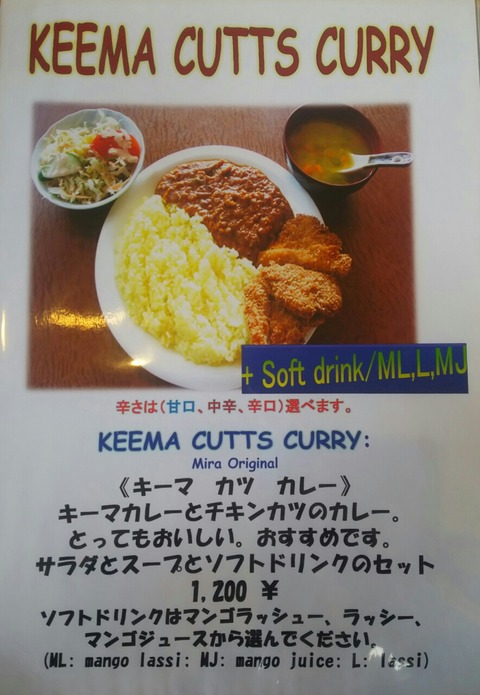 KEEMA CUTTS CURRY
+ Soft drink/ML,L,MJ
辛さは(甘口、中辛、辛口)選べます。
KEEMA CUTTS CURRY:
Mira Original
《キーマ カツ カレー》
キーマカレーとチキンカツのカレー。
とってもおいしい。おすすめです。
サラダとスープとソフトドリンクのセット
1,200 ¥
ソフトドリンクはマンゴラッシュー、ラッシー、
マンゴジュースから選んでください。
(ML: mango lassi: MJ: mango juice: L: lassi)